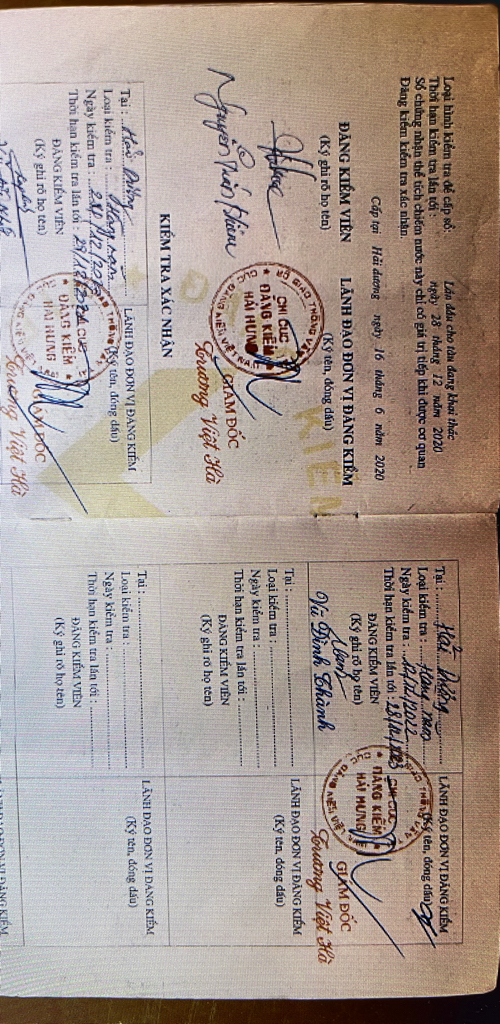 Loại hình kiểm tra để cấp sổ: Lần đầu cho tàu đang khai thác
Thời hạn kiểm tra lần tới: ngày 28 tháng 12 năm 2020
Sổ chứng nhận thể tích chiếm nước này chỉ có giá trị tiếp khi được cơ quan
Đăng kiểm kiểm tra xác nhận.
Cấp tại Hải dương ngày 16 tháng 6 năm 2020
ĐĂNG KIỂM VIÊN
(Ký ghi rõ họ tên)
LÃNH ĐẠO ĐƠN VỊ ĐĂNG KIỂM
(Ký tên, đóng dấu)
CHI CỤC
ĐĂNG KIỂM
HẢI HƯNG
CỤC ĐĂNG KIỂM VIỆT NAM
BỘ GIAO THÔNG VẬN
GIÁM ĐỐC
Trương Việt Hà
Nguyễn
KIỂM TRA XÁC NHẬN
Tại : Hải Dương
Loại kiểm tra : Hàng năm
Ngày kiểm tra :
Thời hạn kiểm tra lần tới :
ĐĂNG KIỂM VIÊN
(Ký ghi rõ họ tên)
LÃNH ĐẠO ĐƠN VỊ ĐĂNG KIỂM
(Ký tên, đóng dấu)
CHI CỤC
ĐĂNG KIỂM
HẢI HƯNG
GIÁM ĐỐC
Trương Việt Hà
KIỂM
Tại : Hải Dương
Loại kiểm tra : Hàng năm
Ngày kiểm tra :
Thời hạn kiểm tra lần tới :
ĐĂNG KIỂM VIÊN
(Ký ghi rõ họ tên)
Vũ Đình Thành
LÃNH ĐẠO ĐƠN VỊ ĐĂNG KIỂM
(Ký tên, đóng dấu)
CHI CỤC
ĐĂNG KIỂM
HẢI HƯNG
GIÁM ĐỐC
Trương Việt Hà
Tại :
Loại kiểm tra :
Ngày kiểm tra :
Thời hạn kiểm tra lần tới :
ĐĂNG KIỂM VIÊN
(Ký ghi rõ họ tên)
LÃNH ĐẠO ĐƠN VỊ ĐĂNG KIỂM
(Ký tên, đóng dấu)
Tại :
Loại kiểm tra :
Ngày kiểm tra :
Thời hạn kiểm tra lần tới :
ĐĂNG KIỂM VIÊN
(Ký ghi rõ họ tên)
LÃNH ĐẠO ĐƠN VỊ ĐĂNG KIỂM
(Ký tên, đóng dấu)
LÃNH ĐẠO ĐƠN VỊ ĐĂNG KIỂM